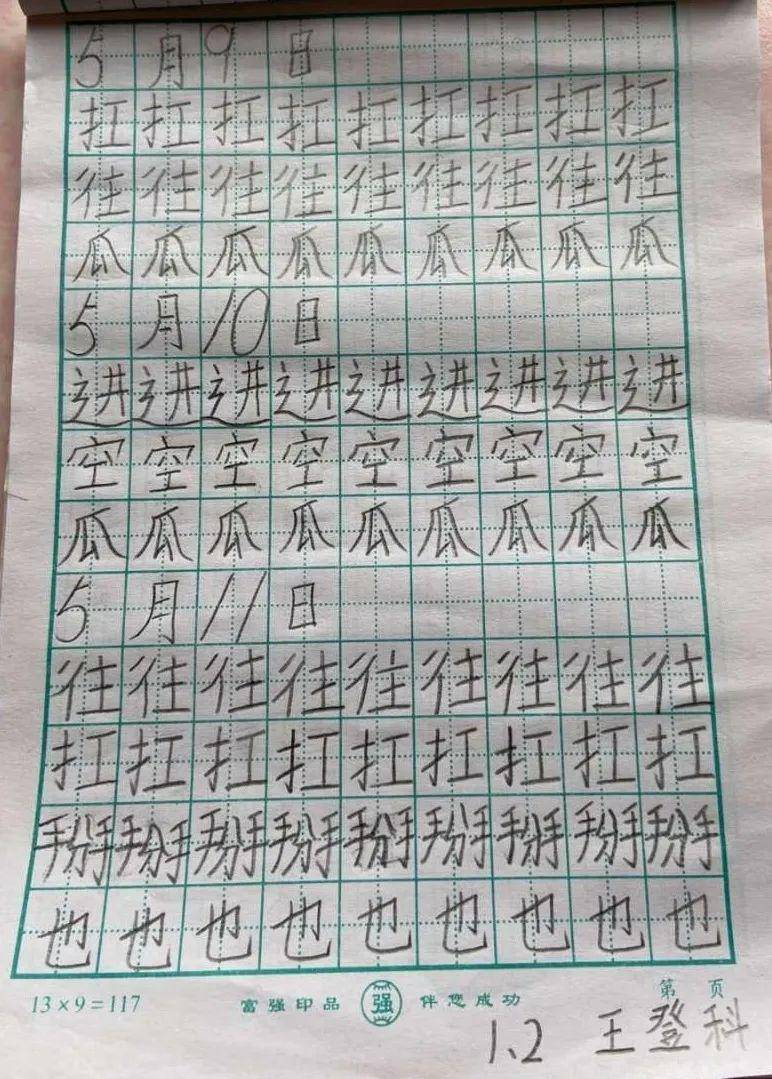 5月9日
扛扛扛扛扛扛扛扛扛
往往往往往往往往往
瓜瓜瓜瓜瓜瓜瓜瓜瓜
5月10日
进进进进进进进进进
空空空空空空空空空
瓜瓜瓜瓜瓜瓜瓜瓜瓜
5月11日
往往往往往往往往往
扛扛扛扛扛扛扛扛扛
掰掰掰掰掰掰掰掰掰
也也也也也也也也也
13×9=117 富强印品 强 伴您成功 第 页
1、2 王登科